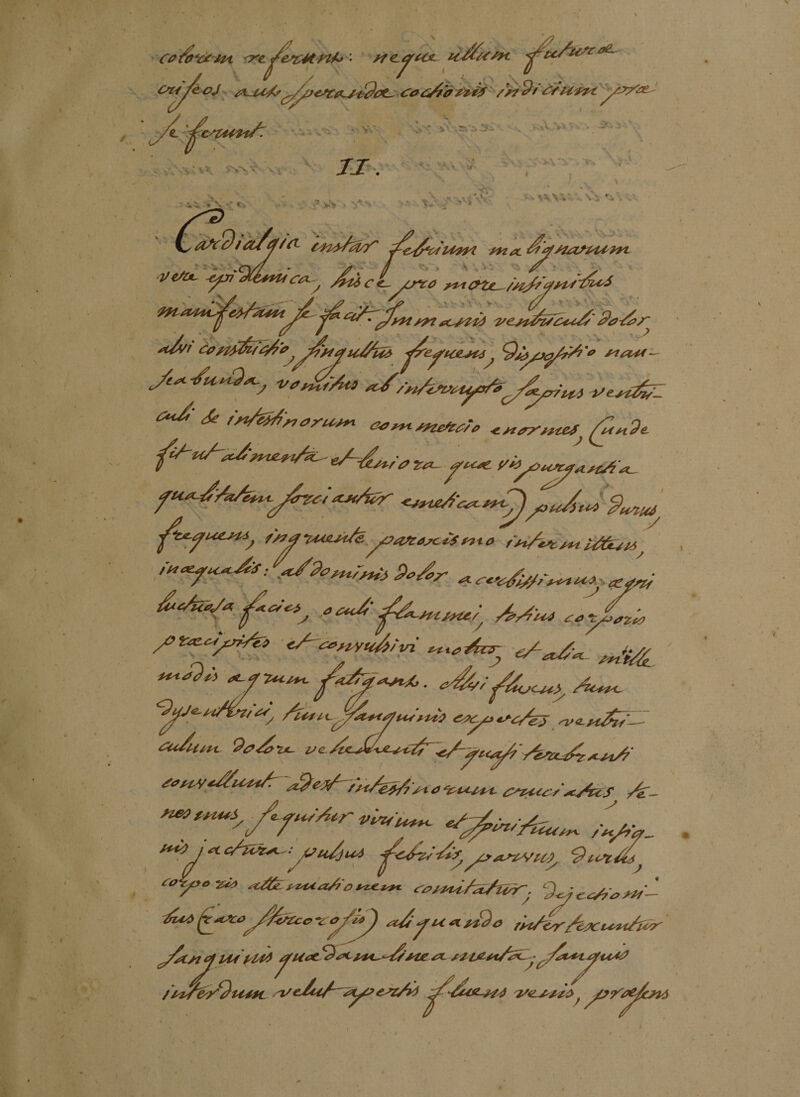 colorem referunt: neque ullum futurae
criseos aut sperandae coctionis indicium prae
se ferunt.
II.
Cardialgia instar febrium malignarum
vere epidemica, hisce pro more insignibus
manifestam se facit. Immanis ventriculi dolor,
alvi constrictio, singultus frequens, dispositio nau-
seabunda, vomitus ab interrupto saepius ventri-
culi & intestinorum commercio enormes, (unde
fit ut alimenta et heniora quae vi purgandi
qualitatem sortiantur emeticam,) pulsus durus,
frequens, ingruente paroxismo intermittens,
inaequalis: abdominis dolor acerbissimus, aegri
luctuosa facies, oculi flammei, totius corporis
praecipites et convulsivi motus, et alia mille
modis aegrum fatigant. Alvi fluxus, tum
dysenterici, tum sanguinis expertes ventri-
culum dolore vehementi et quasi terebranti
convellunt. adest intestinorum cruciatus, te-
nesmus, sequitur virium et spirituum insig-
nis jactura: pulsus febrilis, parvus, durus,
corporis attenuationem comitatur. Dejectioni-
bus (raro stercorosis) aliquando intertexuntur
sanguinis quaedam lineamenta, sanguis
interdum velut apertis fluens venis, praesens